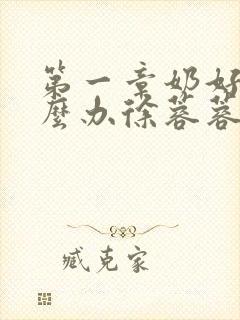 第一章奶好
麼办徐蓉蓉
臧克家